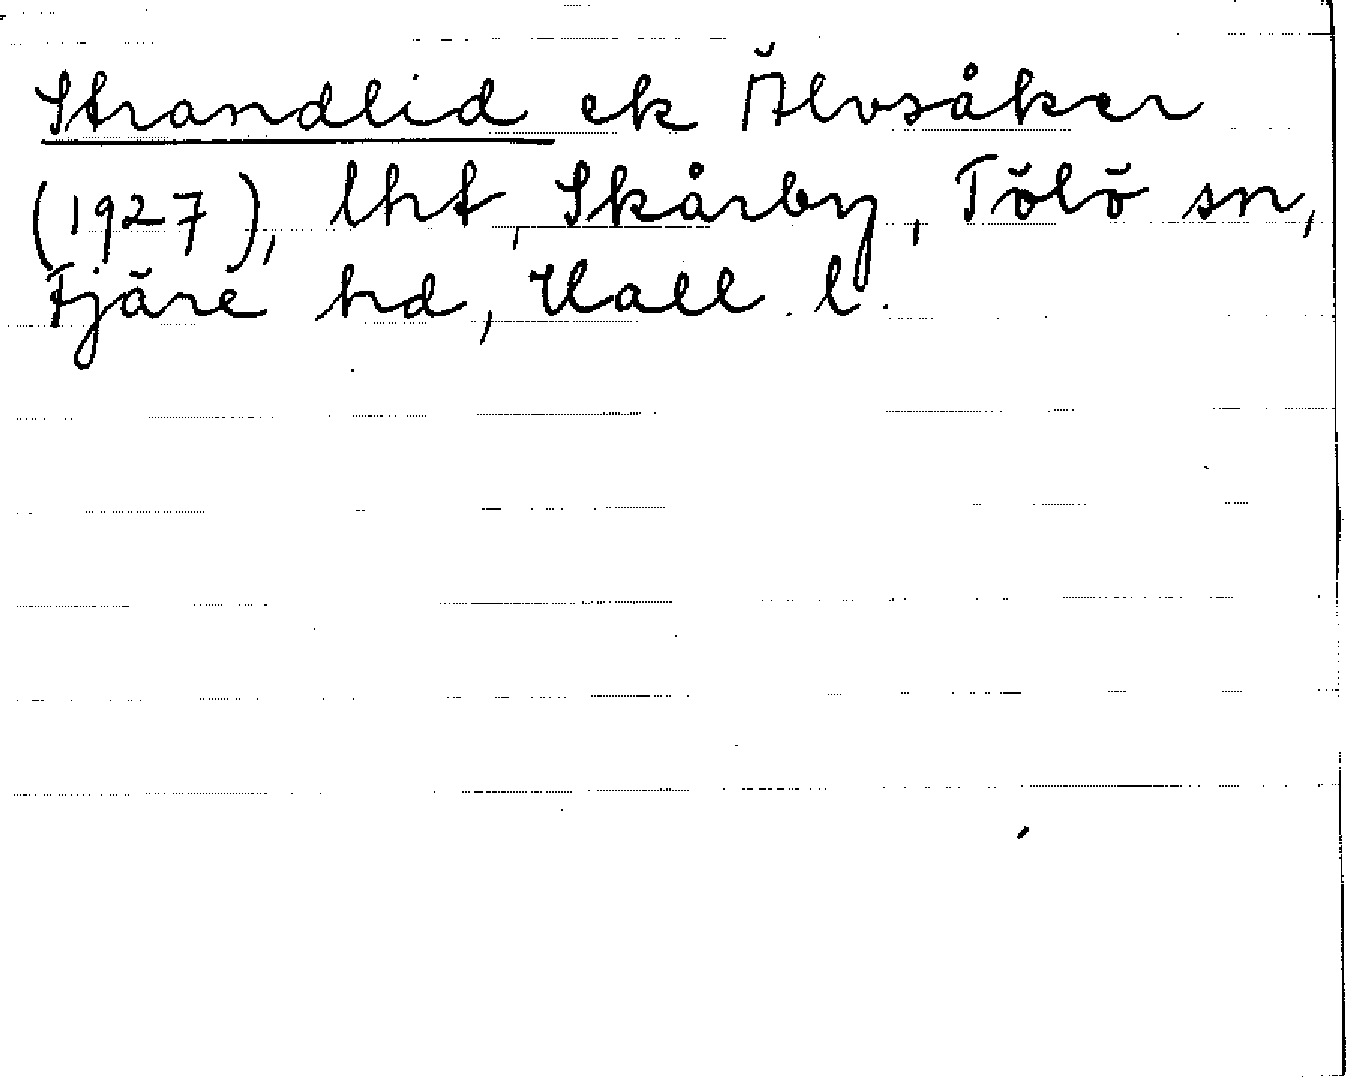 Strandlid ek Älvsåker
(1927), lht, Skårby, Tölö sn,
Fjäre hd, Hall. l.